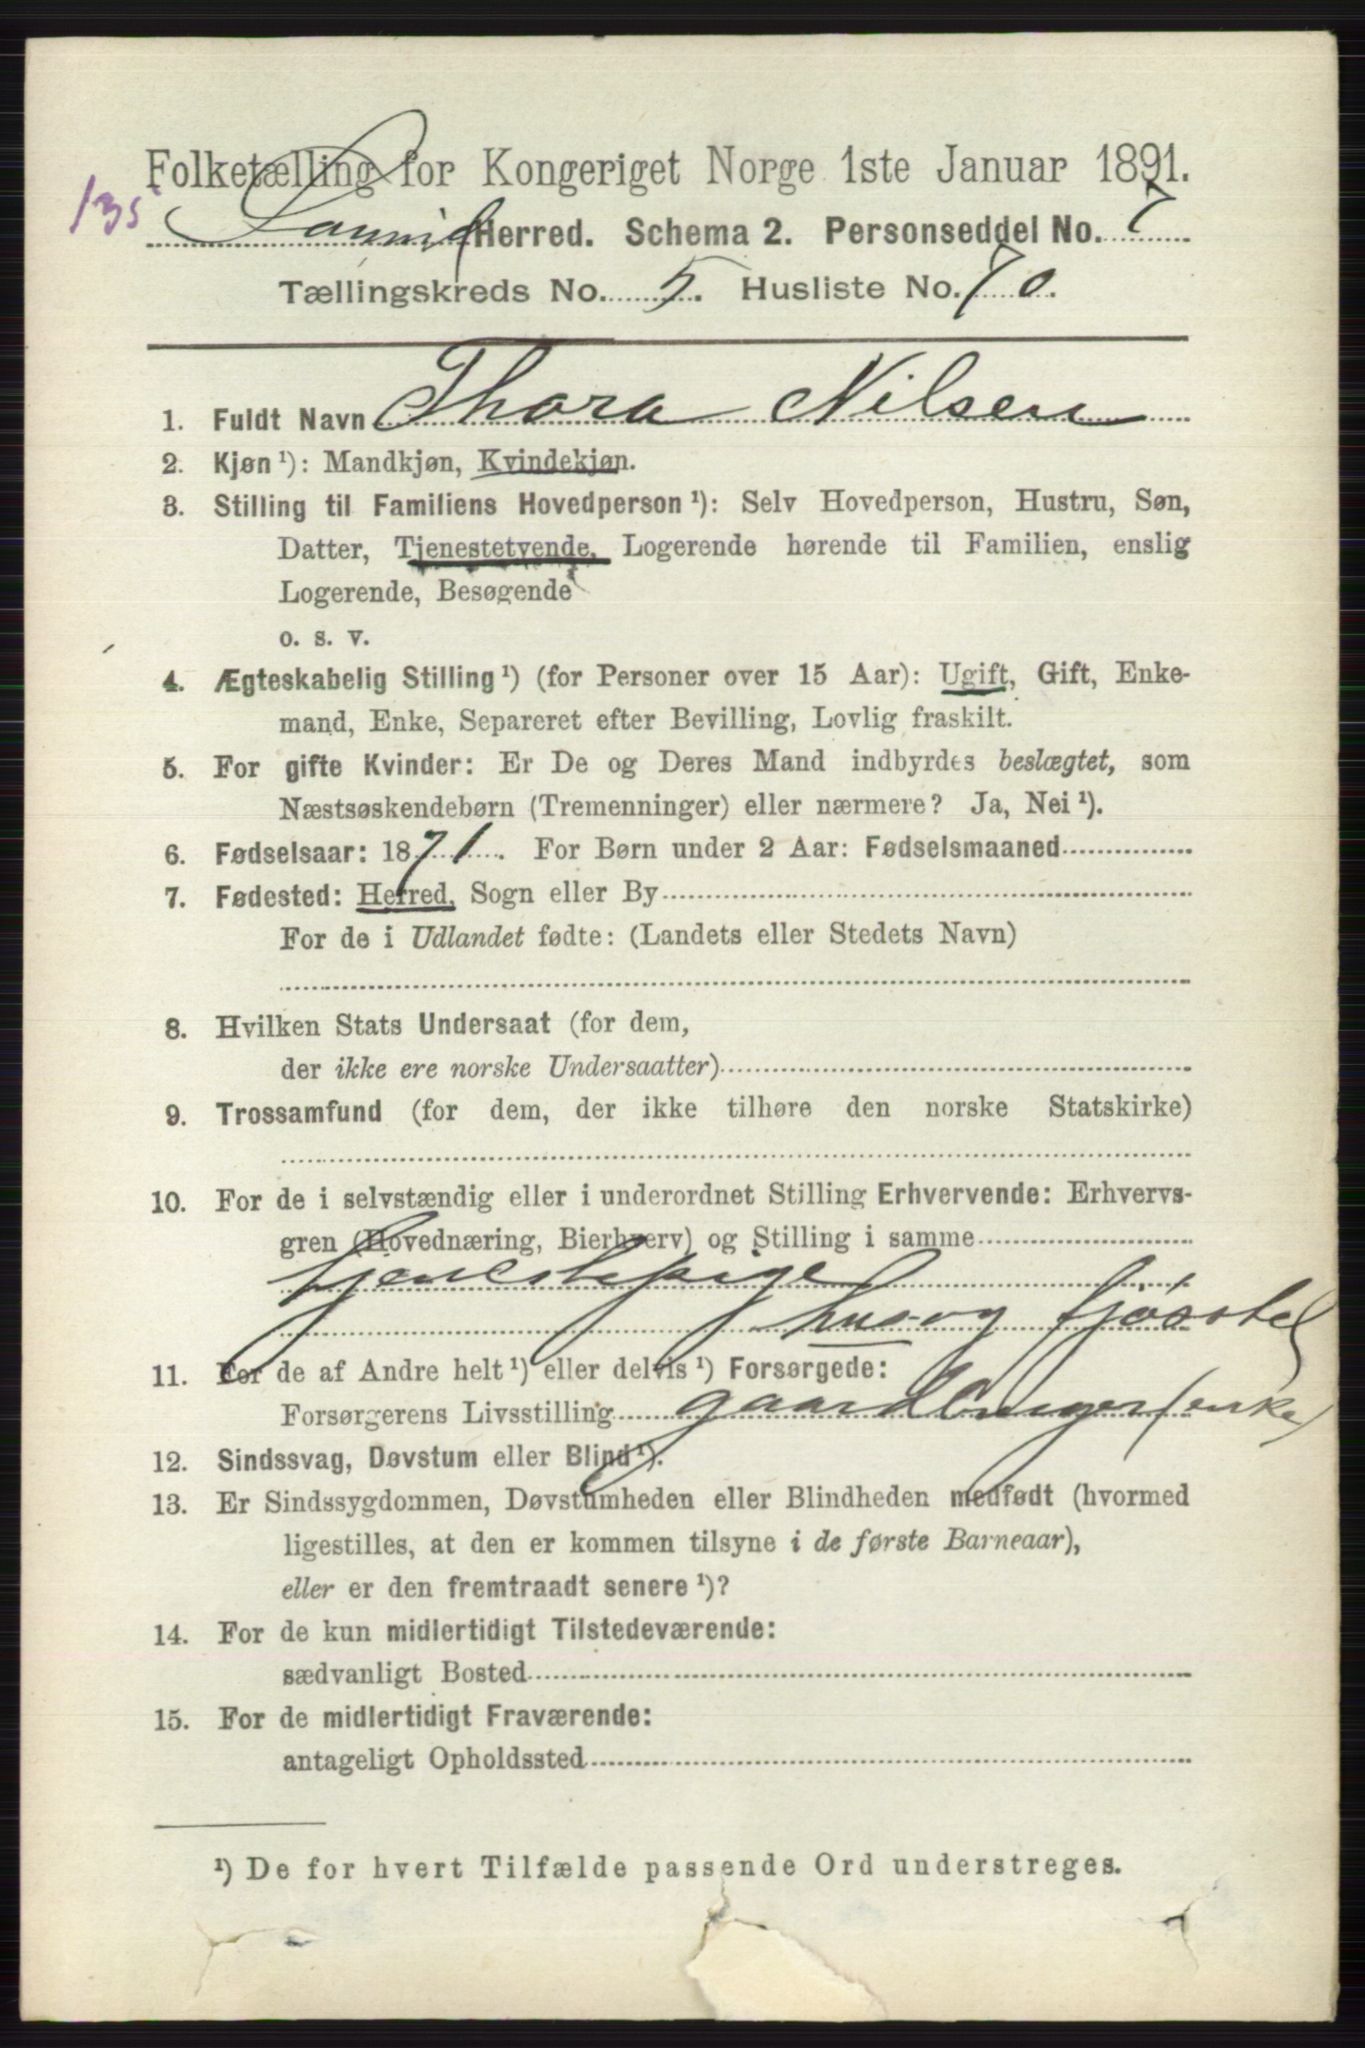 Folketælling for Kongeriget Norge 1ste Januar 1891.
135
Herred. Schema 2. Personseddel No. 7
Tællingskreds No. 5. Husliste No. 70.
1. Fuldt Navn Thora Nilsen
2. Kjøn ¹): Mandkjøn, Kvindekjøn.
3. Stilling til Familiens Hovedperson ¹): Selv Hovedperson, Hustru, Søn,
Datter, Tjenestetyende, Logerende hørende til Familien, enslig
Logerende, Besøgende
o. s. v.
4. Ægteskabelig Stilling ¹) (for Personer over 15 Aar): Ugift, Gift, Enke-
mand, Enke, Separeret efter Bevilling, Lovlig fraskilt.
5. For gifte Kvinder: Er De og Deres Mand indbyrdes beslægtet, som
Næstsøskendebørn (Tremenninger) eller nærmere? Ja, Nei ¹).
6. Fødselsaar: 1871. For Børn under 2 Aar: Fødselsmaaned
7. Fødested: Herred, Sogn eller By
For de i Udlandet fødte: (Landets eller Stedets Navn)
8. Hvilken Stats Undersaat (for dem,
der ikke ere norske Undersaatter)
9. Trossamfund (for dem, der ikke tilhøre den norske Statskirke)
10. For de i selvstændig eller i underordnet Stilling Erhvervende: Erhvervs-
gren (Hovednæring, Bierhverv) og Stilling i samme
tjenestepige
hus og fjøsstel
11. For de af Andre helt ¹) eller delvis ¹) Forsørgede:
Forsørgerens Livsstilling gaardbruger (enke)
12. Sindssvag, Døvstum eller Blind ¹).
13. Er Sindssygdommen, Døvstumheden eller Blindheden medfødt (hvormed
ligestilles, at den er kommen tilsyne i de første Barneaar),
eller er den fremtraadt senere ¹)?
14. For de kun midlertidigt Tilstedeværende:
sædvanligt Bosted
15. For de midlertidigt Fraværende:
antageligt Opholdssted
¹) De for hvert Tilfælde passende Ord understreges.